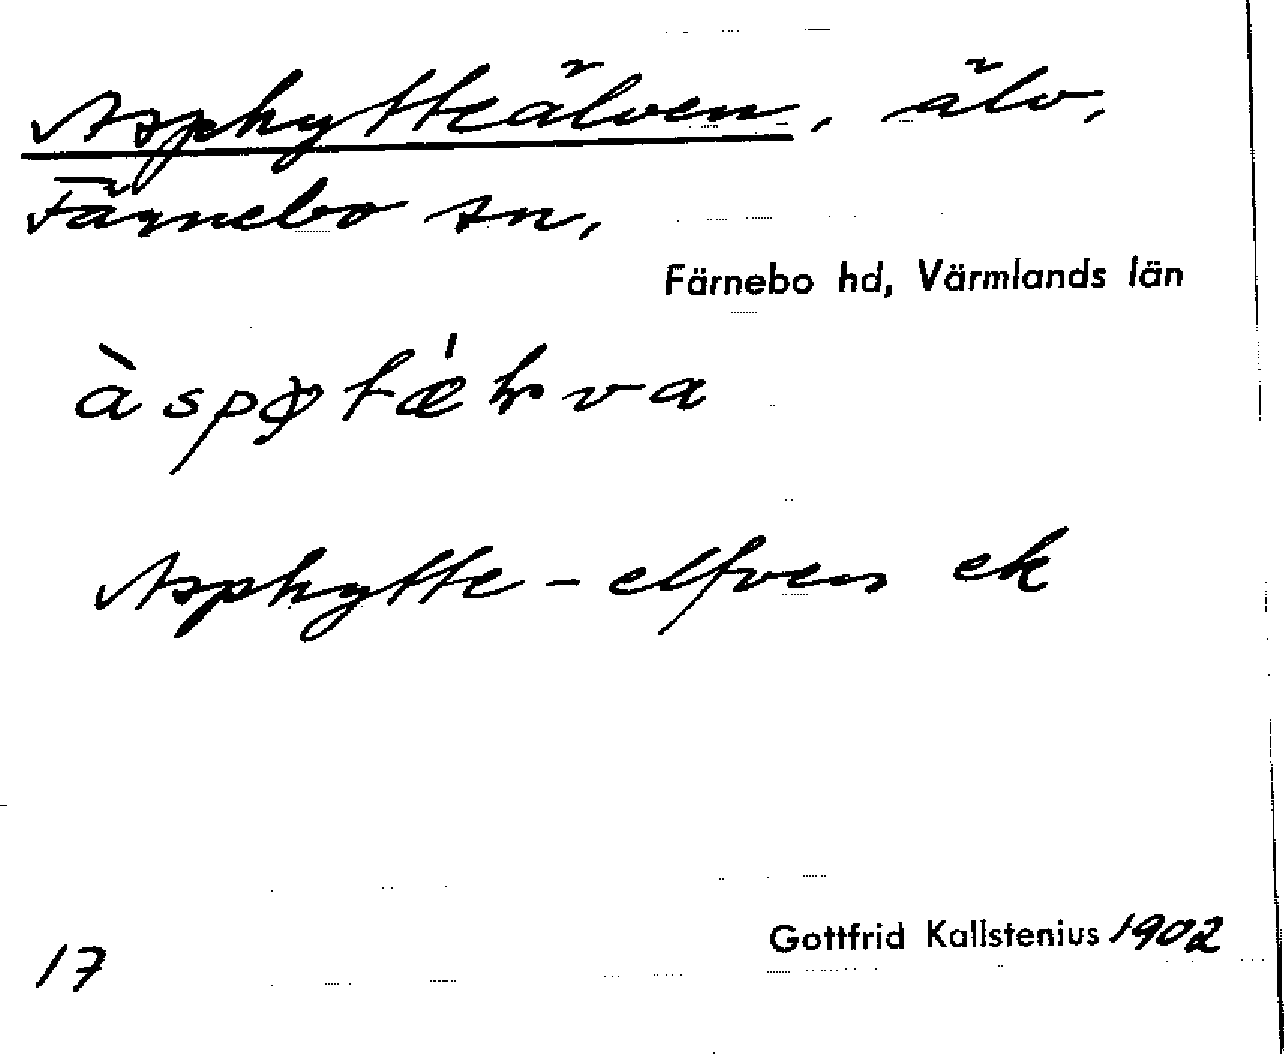 Asphytteälven, älv,
Färnebo sn,
Färnebo hd, Värmlands län
Asphytte-elfven ek
Gottfrid Kallstenius 1902
17